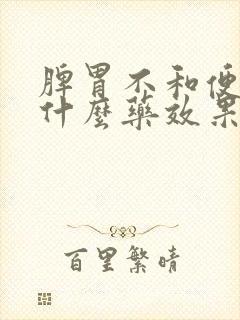 脾胃不和便
什麼藥效果
百里繁晴